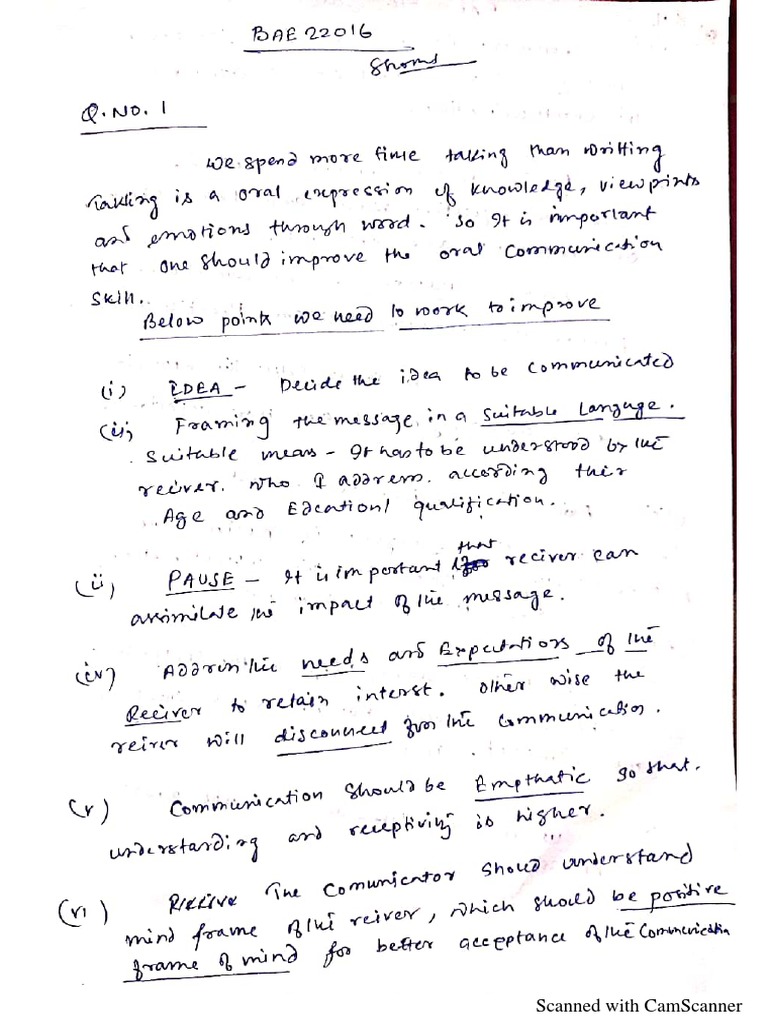 BAE 22016
Q. NO. 1
We spend more time talking than writting
Talking is a oral expression of knowledge, viewpints
and emotions through word. So It is important
that one should improve the oral communication
skill.
Below points we need to work to improve
(i) IDEA - Decide the idea to be communicated
(ii) Framing the message in a suitable Languge.
Suitable means - It has to be understood by the
reciver. who I address. according their
Age and Edcationl qualification.
(ii) PAUSE - It is important that reciver can
assimilate the impact of the message.
(iv) Address the needs and Expectations of the
Reciver to retain interst. Other wise the
reirer will disconnect from the communication.
(v) Communication should be Empthatic so that.
understanding and receptiving is higher.
(vi) The Comunicator should understand
mind frame of the reiver, which should be positive
frame of mind for better acceptance of the communication
Scanned with CamScanner